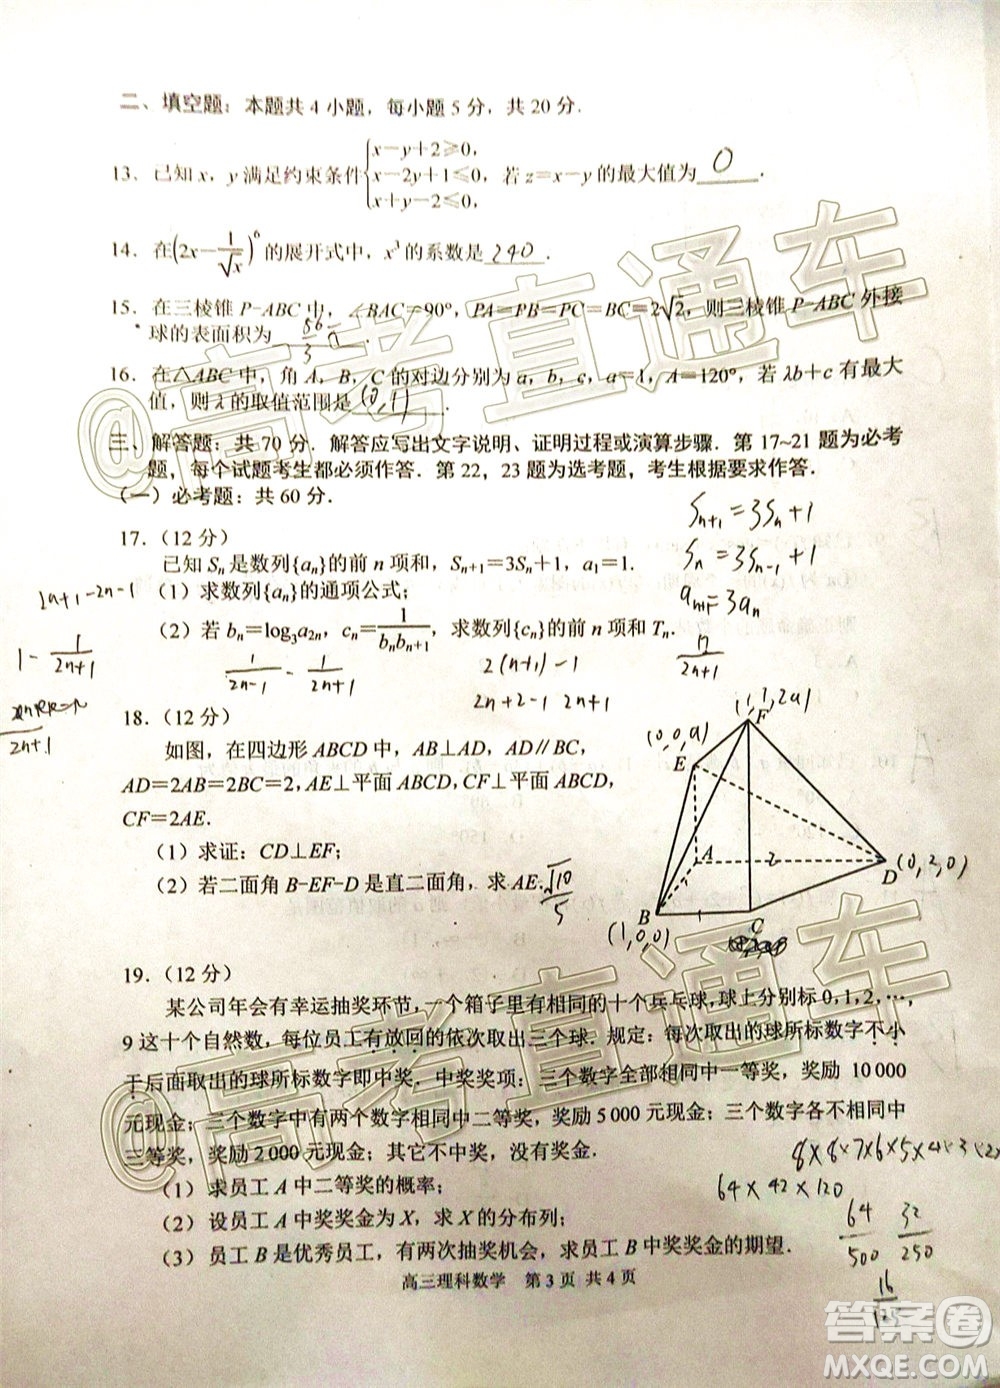 二、填空题：本题共4小题，每小题5分，共20分．
13．已知x，y满足约束条件{x−y+2⩾0，x−2y+1⩽0，x+y−2⩽0，若z=x−y的最大值为 0 ．
14．在(2x−1/√x)^6的展开式中，x³的系数是 240 ．
15．在三棱锥P-ABC中，∠BAC=90°，PA=PB=PC=BC=2√2，则三棱锥P-ABC外接
球的表面积为
16．在△ABC中，角A，B，C的对边分别为a，b，c，a=1，A=120°，若λb+c有最大
值，则λ的取值范围是 (0,1) ．
三、解答题：共70分．解答应写出文字说明、证明过程或演算步骤．第17~21题为必考
题，每个试题考生都必须作答．第22，23题为选考题，考生根据要求作答．
（一）必考题：共60分．
Sn+1=3Sn+1
17．（12分）
Sn=3Sn-1+1
已知Sn是数列{an}的前n项和，Sn+1=3Sn+1，a1=1．
2n+1-2n-1
（1）求数列{an}的通项公式；
an+1=3an
（2）若bn=log₃a2n，cn=1/(bnbn+1)，求数列{cn}的前n项和Tn．
1-1/(2n+1)
1/(2n-1) - 1/(2n+1)
2(n+1)-1
2n+2-1 2n+1
18．（12分）
(1,1,2a)
F
如图，在四边形ABCD中，AB⊥AD，AD∥BC，
(0,0,a)
E
AD=2AB=2BC=2，AE⊥平面ABCD，CF⊥平面ABCD，
CF=2AE．
（1）求证：CD⊥EF；
A 2 D (0,2,0)
（2）若二面角B-EF-D是直二面角，求AE． √10/5
B 1 C
(1,0,0)
19．（12分）
某公司年会有幸运抽奖环节，一个箱子里有相同的十个乒乓球，球上分别标0，1，2，…，
9这十个自然数，每位员工有放回的依次取出三个球．规定：每次取出的球所标数字不小
于后面取出的球所标数字即中奖．中奖奖项：三个数字全部相同中一等奖，奖励10 000
元现金；三个数字中有两个数字相同中二等奖，奖励5 000元现金；三个数字各不相同中
三等奖，奖励2 000元现金；其它不中奖，没有奖金．
8×8×7×6×5×4×3×2×
（1）求员工A中二等奖的概率；
64×42×120
（2）设员工A中奖奖金为X，求X的分布列；
64/500 32/250
（3）员工B是优秀员工，有两次抽奖机会，求员工B中奖奖金的期望．
高三理科数学 第3页 共4页
@高考直通车
@高考直通车
答案圈
MXQE.COM